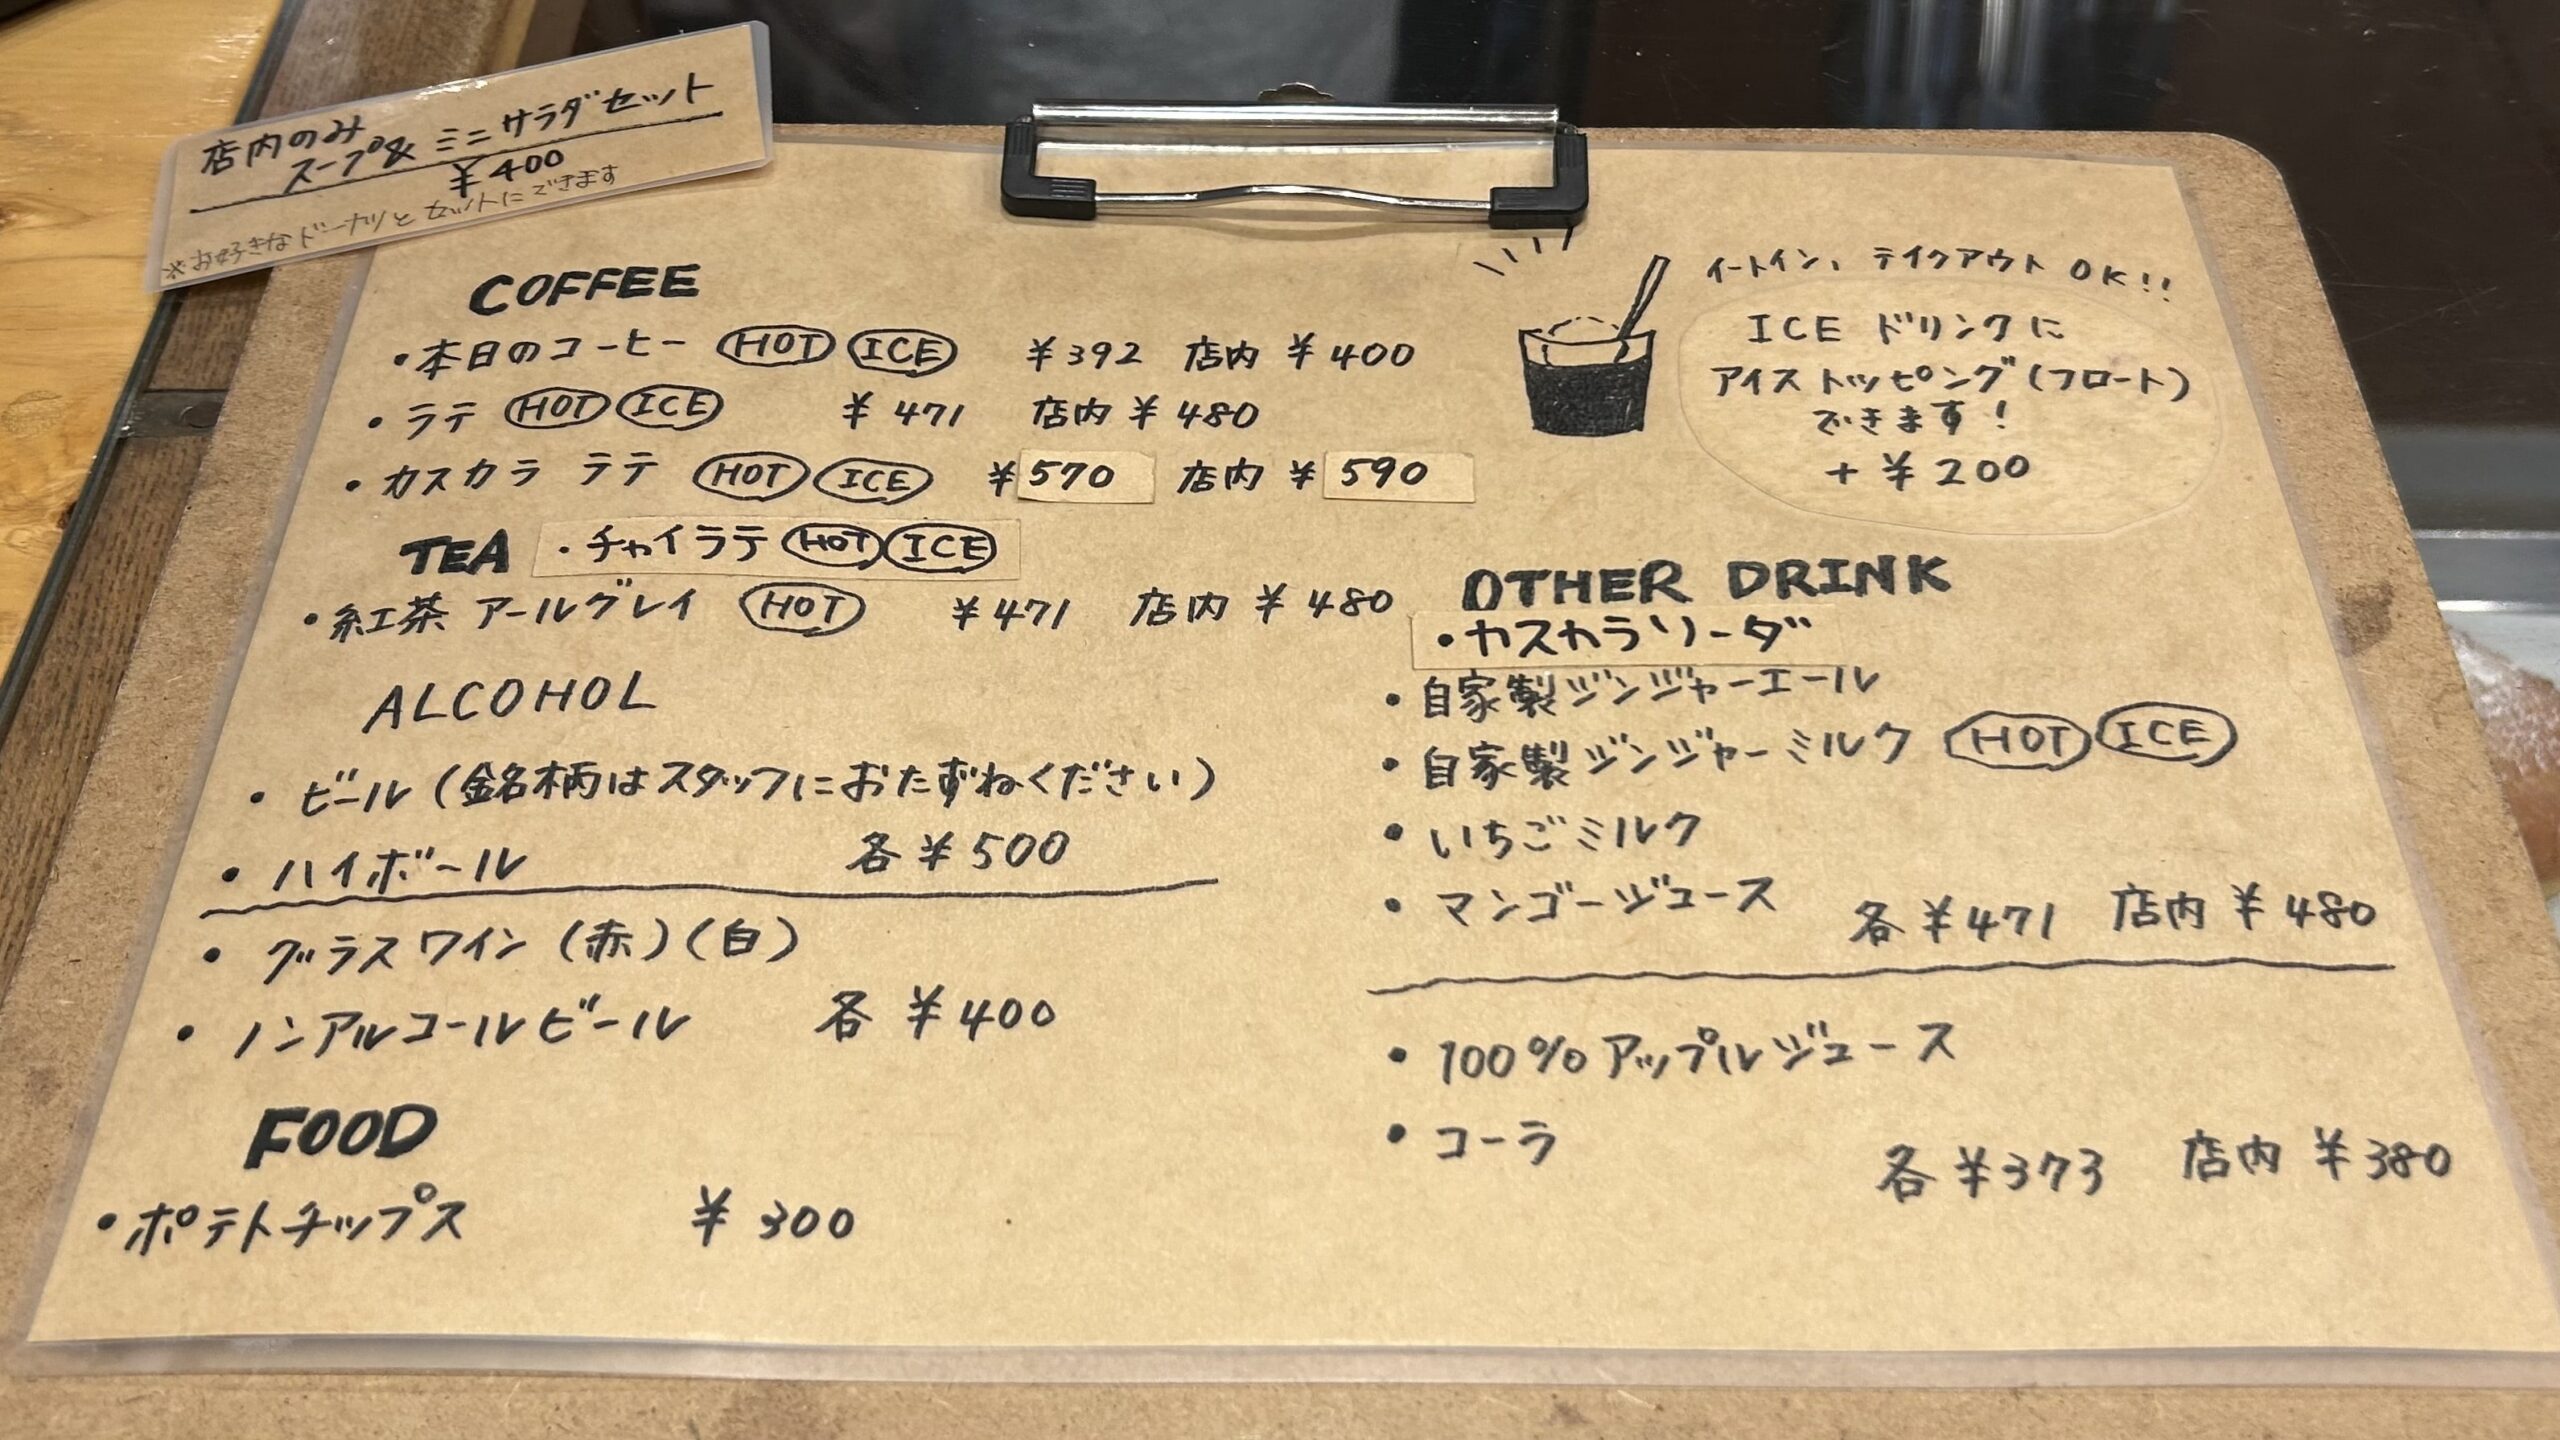 店内のみ
スープ& ミニサラダセット
¥400
※お好きなドーナツとセットにできます
COFFEE
・本日のコーヒー HOT ICE ¥392 店内 ¥400
・ラテ HOT ICE ¥471 店内 ¥480
・カスカラ ラテ HOT ICE ¥570 店内 ¥590
TEA ・チャイラテ HOT ICE
・紅茶 アールグレイ HOT ¥471 店内 ¥480
ALCOHOL
・ビール(銘柄はスタッフにおたずねください)
・ハイボール 各¥500
・グラスワイン(赤)(白)
・ノンアルコールビール 各 ¥400
FOOD
・ポテトチップス ¥300
イートイン、テイクアウト OK!!
ICE ドリンクに
アイストッピング(フロート)
できます!
+¥200
OTHER DRINK
・カスカラソーダ
・自家製ジンジャーエール
・自家製ジンジャーミルク HOT ICE
・いちごミルク
・マンゴージュース 各¥471 店内¥480
・100%アップルジュース
・コーラ 各¥373 店内¥380